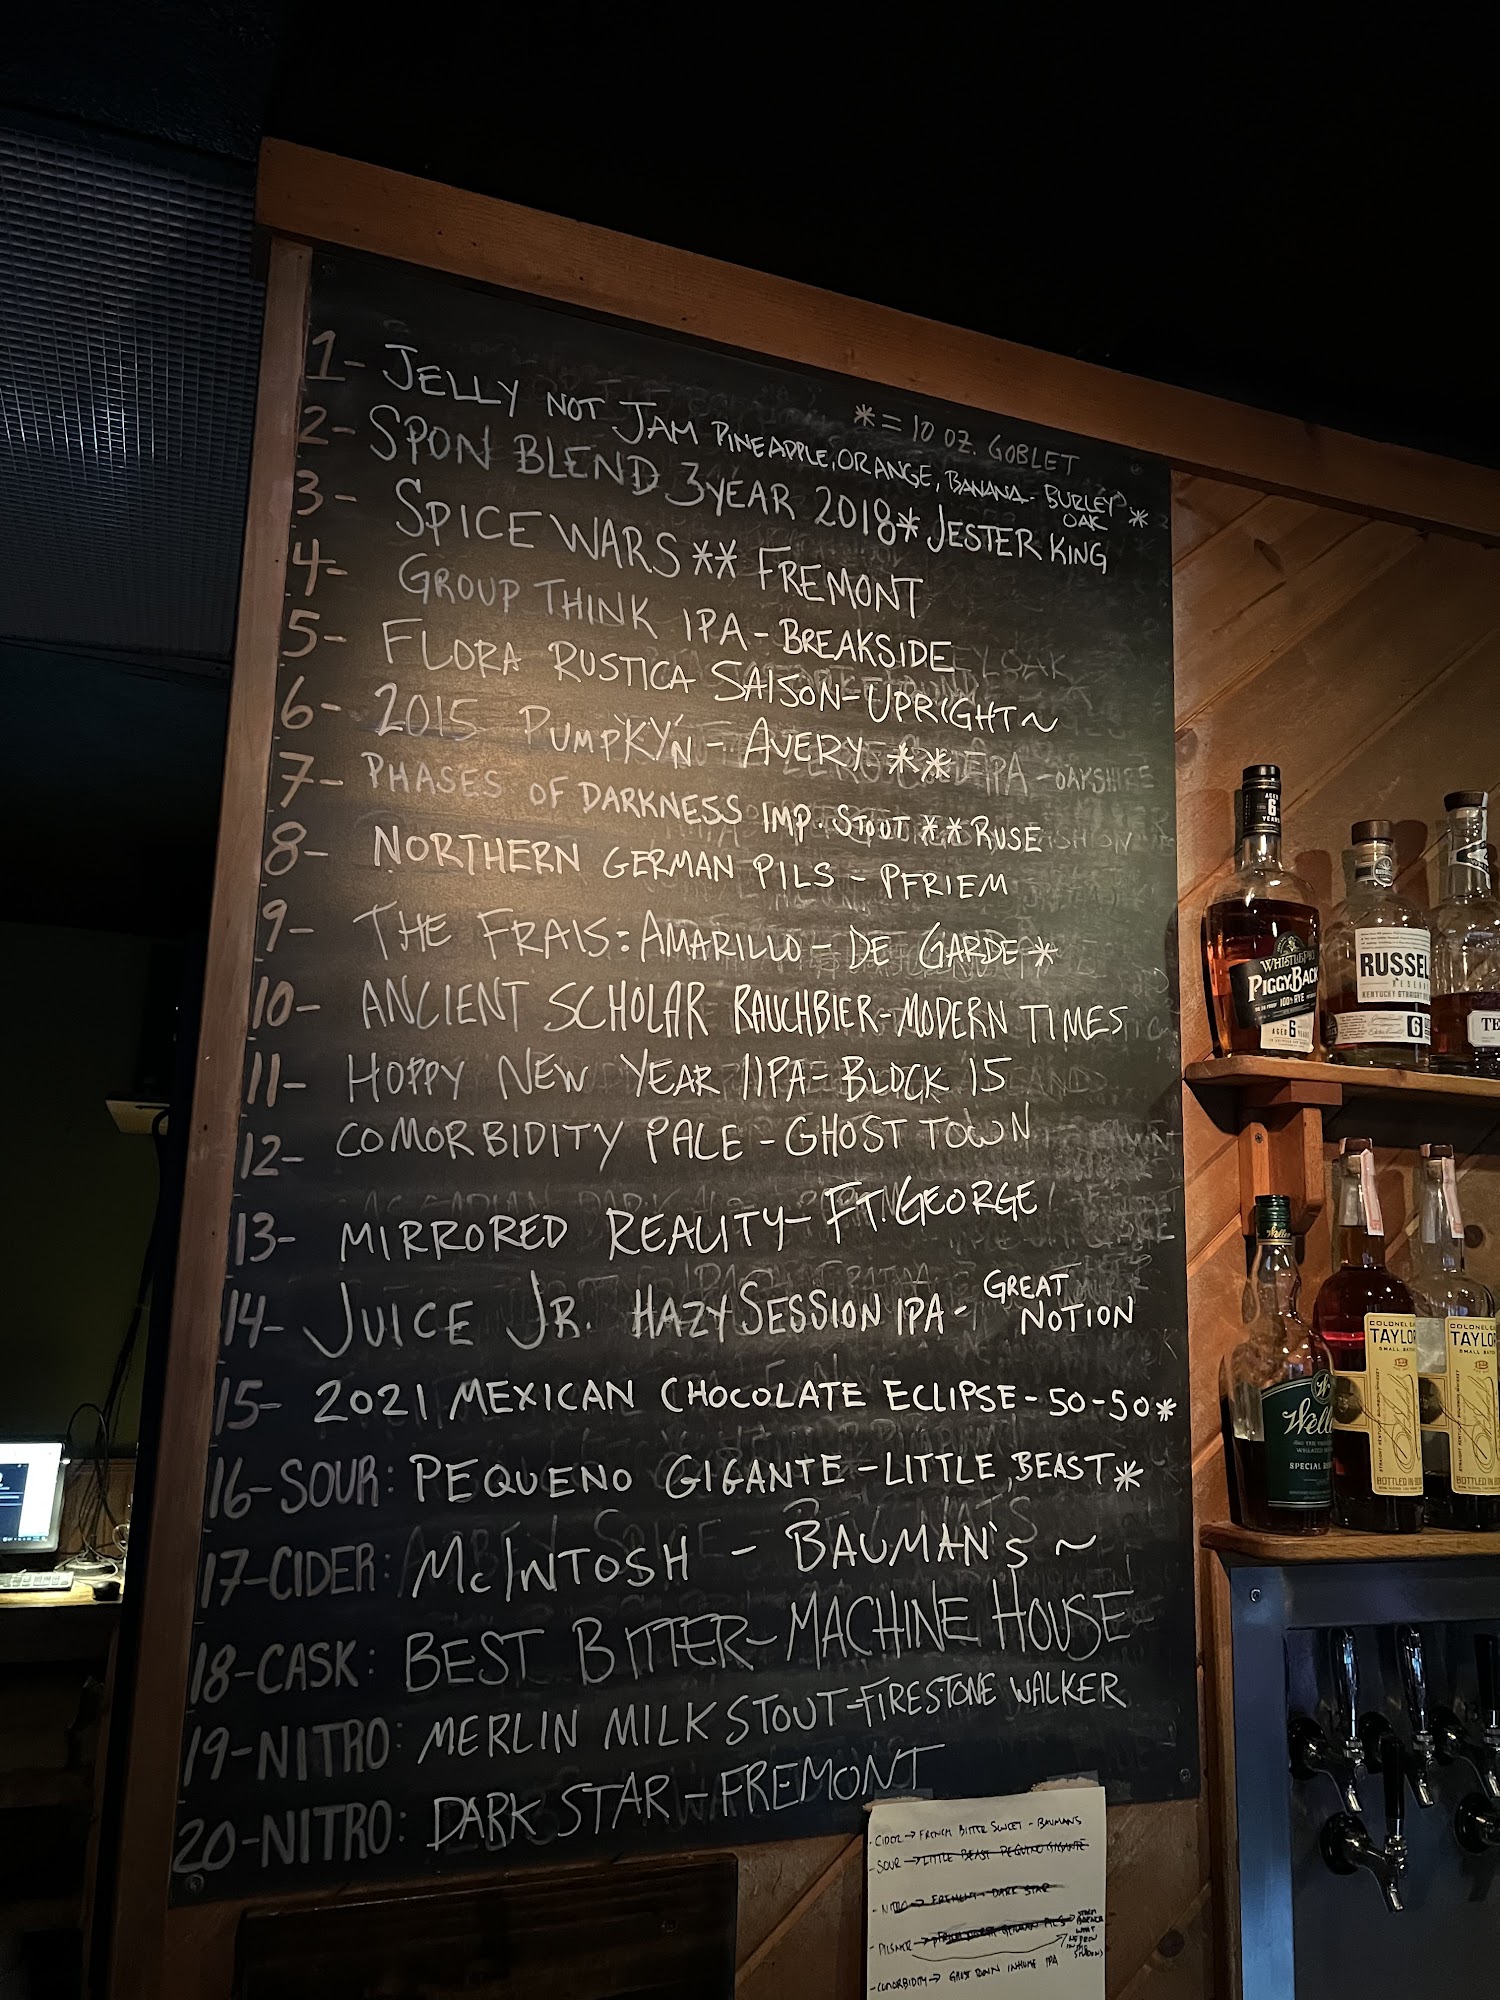 * = 10 OZ. GOBLET
1- JELLY NOT JAM PINEAPPLE, ORANGE, BANANA - BURLEY OAK *
2- SPON BLEND 3 YEAR 2018 * JESTER KING
3- SPICE WARS ** FREMONT
4- GROUP THINK IPA - BREAKSIDE
5- FLORA RUSTICA SAISON - UPRIGHT ~
6- 2015 PUMPKY'N - AVERY **
7- PHASES OF DARKNESS IMP. STOUT ** RUSE
8- NORTHERN GERMAN PILS - PFRIEM
9- THE FRAIS: AMARILLO - DE GARDE *
10- ANCIENT SCHOLAR RAUCHBIER - MODERN TIMES
11- HOPPY NEW YEAR IIPA - BLOCK 15
12- COMORBIDITY PALE - GHOST TOWN
13- MIRRORED REALITY - FT. GEORGE
14- JUICE JR. HAZY SESSION IPA - GREAT NOTION
15- 2021 MEXICAN CHOCOLATE ECLIPSE - 50-50 *
16- SOUR: PEQUENO GIGANTE - LITTLE BEAST *
17- CIDER: McINTOSH - BAUMAN'S ~
18- CASK: BEST BITTER - MACHINE HOUSE
19- NITRO: MERLIN MILK STOUT - FIRESTONE WALKER
20- NITRO: DARK STAR - FREMONT
- CIDER → FRENCH BITTER SWEET - BAUMANS
- SOUR → LITTLE BEAST PEQUENO GIGANTE
- NITRO → FREMONT - DARK STAR
- PILSNER →
- COMORBIDITY → GHOST TOWN IPA
AGED 6 YEARS
WHISTLEPIG
PIGGYBACK
100% RYE
AGED 6 YEARS
RUSSEL
RESERVE
KENTUCKY STRAIGHT
6
TE
Weller
SPECIAL
COLONEL
TAYLOR
SMALL BATCH
BOTTLED IN
COLONEL
TAYLOR
SMALL BATCH
BOTTLED IN